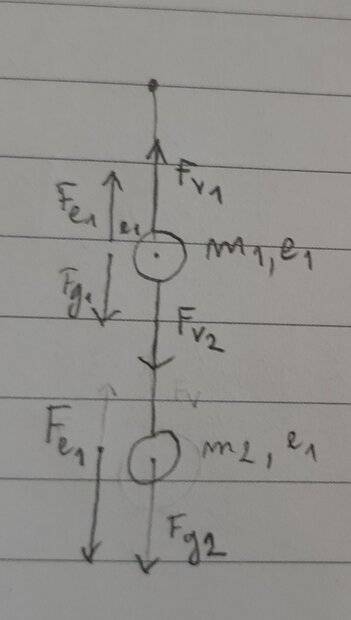 Fv1
Fe1
e1
m1, e1
Fg1
Fv2
Fe1
m2, e1
Fg2